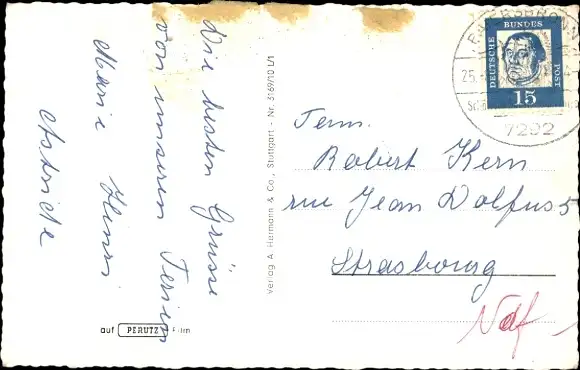 Die besten Grüsse
von unseren Ferien
Marie Henri
Verlag A. Harmann & Co., Stuttgart - Nr. 3169/10 L/1
auf PERUTZ Film
DEUTSCHE BUNDES POST
15
25.
7292
Fam.
Robert Kern
rue Jean Dolfus 5
Strasbourg
Ndf